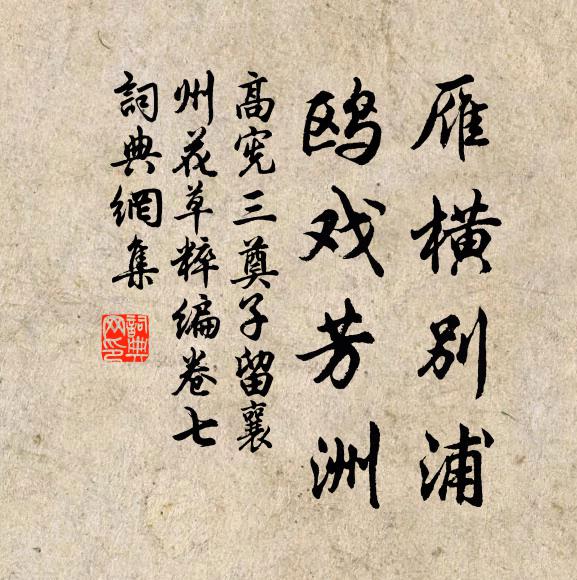 雁横別浦
鸥戏芳洲
高宪三奠子留襄
州花草粹编卷七
詞典網集
詞典
网印